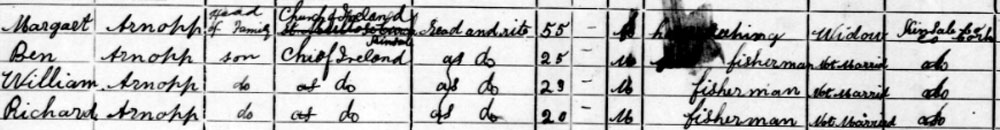 Margaret Arnopp Head of Family Church Ireland Read and rite 55 - Widow Kinsale Co Cork
Ben Arnopp son Chi of Ireland as do 25 - M fisherman Not Married do
William Arnopp do as do as do 23 - M fisherman Not Married do
Richard Arnopp do as do as do 20 - M fisherman Not Married do